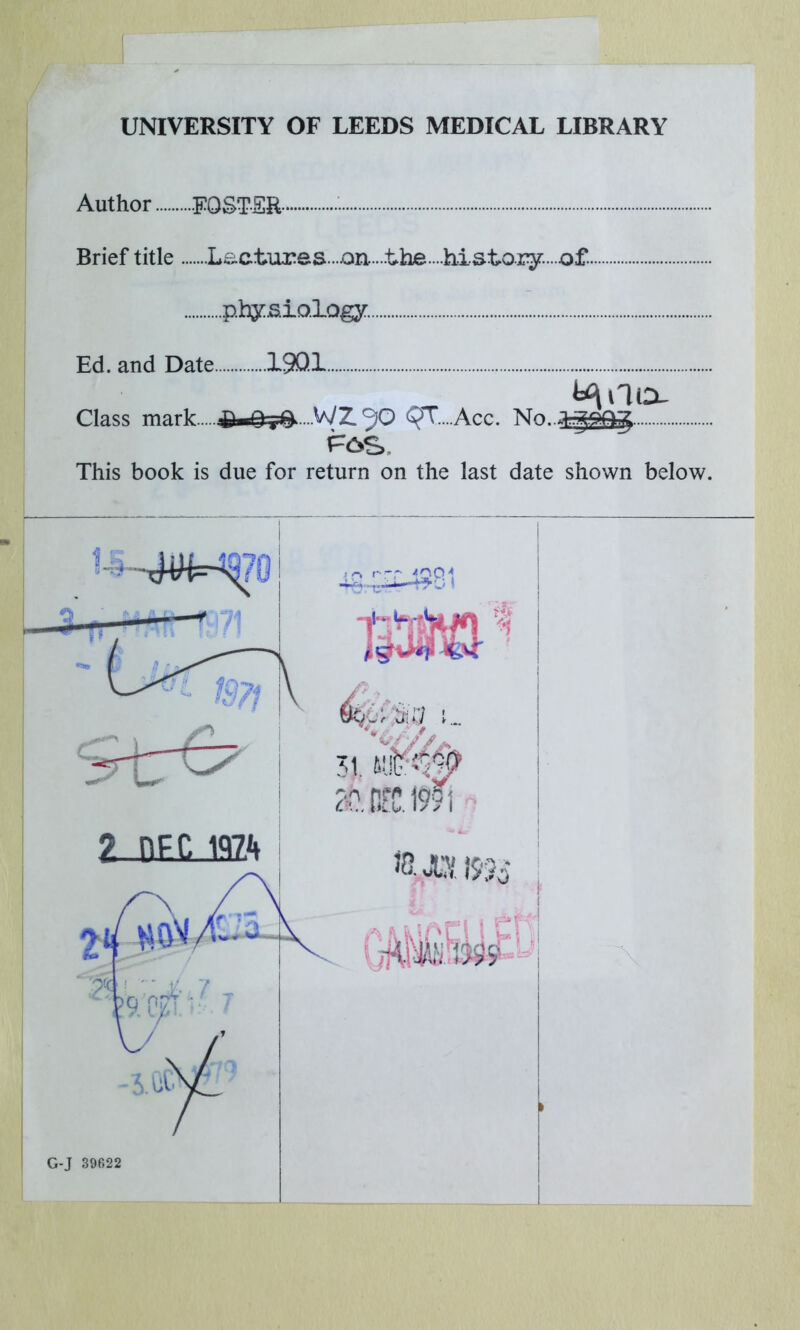 UNIVERSITY OF LEEDS MEDICAL LIBRARY
Author.........FOSTER
Brief title ......Lectures...on...the...history...of
physiology
Ed. and Date............1901
Class mark.....WZ 90 QT....Acc. No.
FOS.
This book is due for return on the last date shown below.
15 JUL 1970
MAR 1971
- 6 JUL 1971
SLC
2 DEC 1974
24 NOV 1975
-3. OCT 1979
18 DEC 1981
31. AUG 1990
20. DEC. 1991
CANCELLED
-4. JAN. 1999
G-J 39622